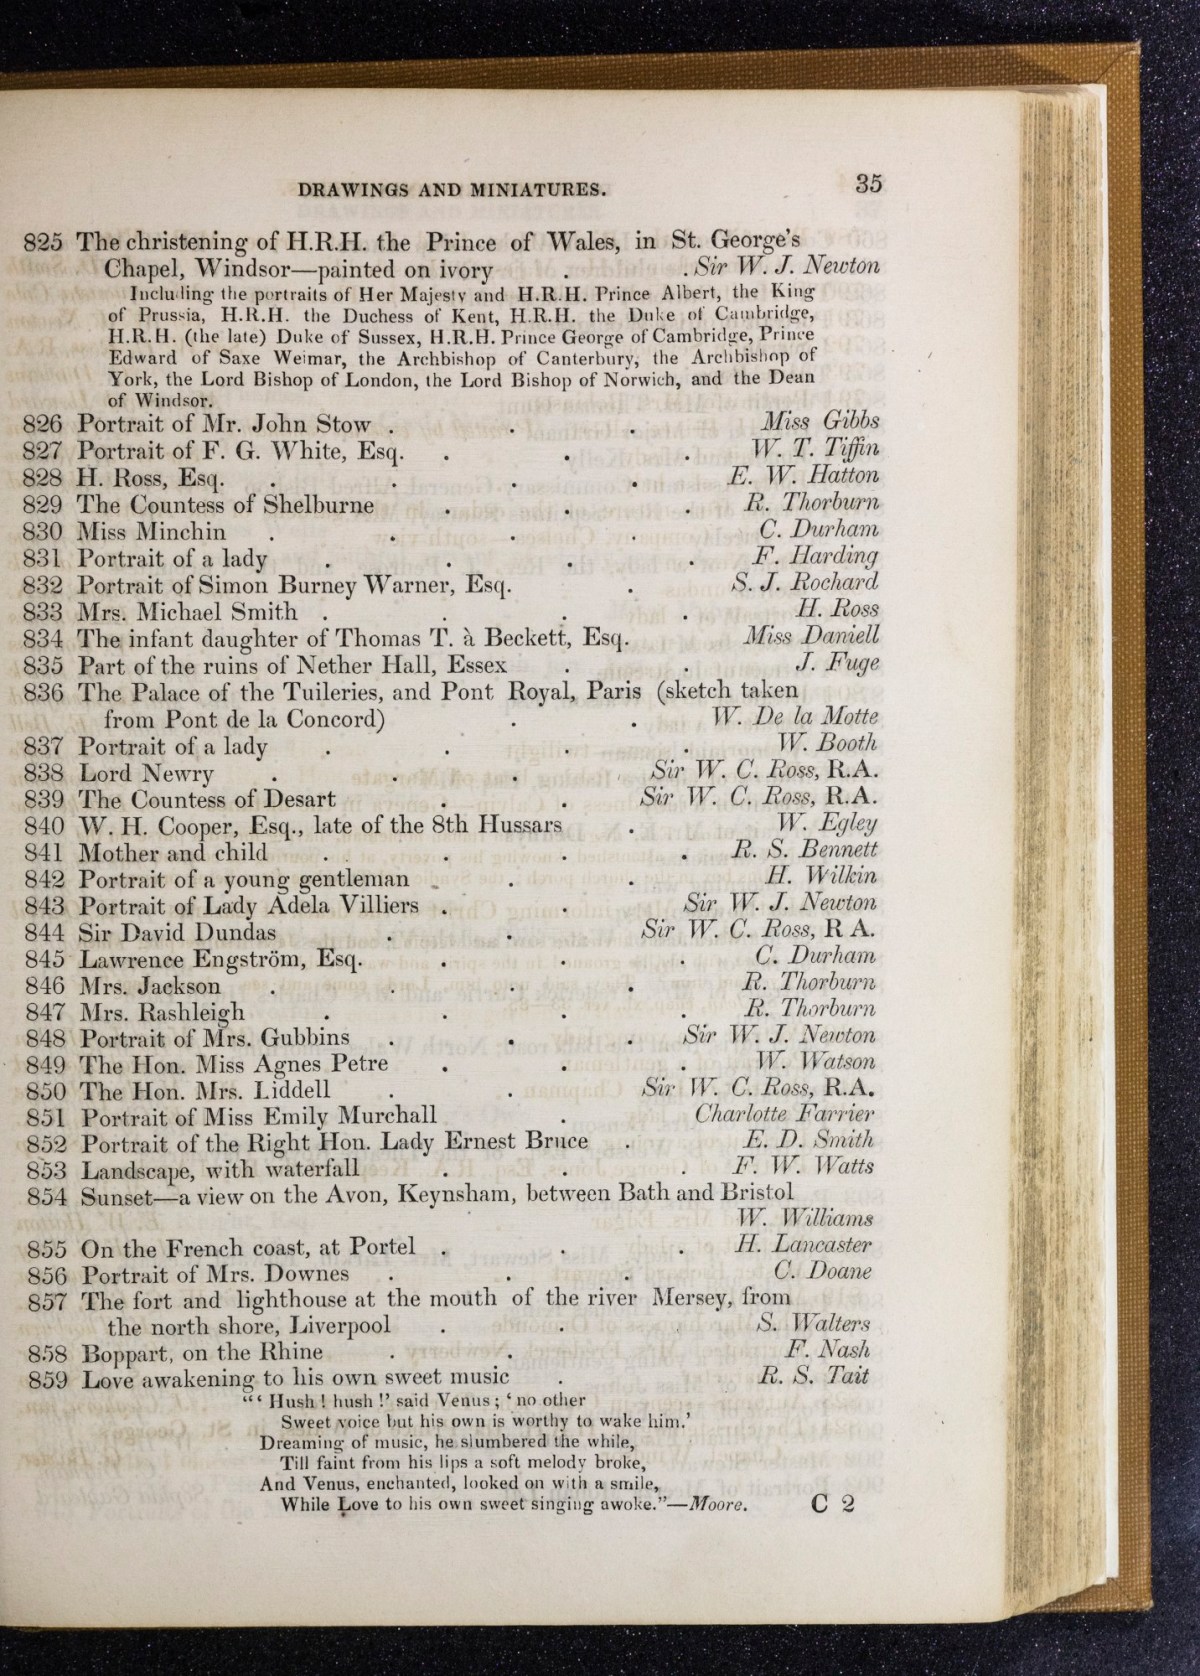 DRAWINGS AND MINIATURES. 35
825 The christening of H.R.H. the Prince of Wales, in St. George's
Chapel, Windsor—painted on ivory . . Sir W. J. Newton
Including the portraits of Her Majesty and H.R.H. Prince Albert, the King
of Prussia, H.R.H. the Duchess of Kent, H.R.H. the Duke of Cambridge,
H.R.H. (the late) Duke of Sussex, H.R.H. Prince George of Cambridge, Prince
Edward of Saxe Weimar, the Archbishop of Canterbury, the Archbishop of
York, the Lord Bishop of London, the Lord Bishop of Norwich, and the Dean
of Windsor.
826 Portrait of Mr. John Stow . . . Miss Gibbs
827 Portrait of F. G. White, Esq. . . . W. T. Tiffin
828 H. Ross, Esq. . . . . E. W. Hatton
829 The Countess of Shelburne . . . R. Thorburn
830 Miss Minchin . . . . C. Durham
831 Portrait of a lady . . . . F. Harding
832 Portrait of Simon Burney Warner, Esq. . S. J. Rochard
833 Mrs. Michael Smith . . . . H. Ross
834 The infant daughter of Thomas T. à Beckett, Esq. Miss Daniell
835 Part of the ruins of Nether Hall, Essex . . J. Fuge
836 The Palace of the Tuileries, and Pont Royal, Paris (sketch taken
from Pont de la Concord) . . W. De la Motte
837 Portrait of a lady . . . . W. Booth
838 Lord Newry . . . . Sir W. C. Ross, R.A.
839 The Countess of Desart . . Sir W. C. Ross, R.A.
840 W. H. Cooper, Esq., late of the 8th Hussars . W. Egley
841 Mother and child . . . . R. S. Bennett
842 Portrait of a young gentleman . . . H. Wilkin
843 Portrait of Lady Adela Villiers . . Sir W. J. Newton
844 Sir David Dundas . . Sir W. C. Ross, R A.
845 Lawrence Engström, Esq. . . . C. Durham
846 Mrs. Jackson . . . . R. Thorburn
847 Mrs. Rashleigh . . . . R. Thorburn
848 Portrait of Mrs. Gubbins . . . Sir W. J. Newton
849 The Hon. Miss Agnes Petre . . . W. Watson
850 The Hon. Mrs. Liddell . . Sir W. C. Ross, R.A.
851 Portrait of Miss Emily Murchall . Charlotte Farrier
852 Portrait of the Right Hon. Lady Ernest Bruce . E. D. Smith
853 Landscape, with waterfall . . . F. W. Watts
854 Sunset—a view on the Avon, Keynsham, between Bath and Bristol
W. Williams
855 On the French coast, at Portel . . . H. Lancaster
856 Portrait of Mrs. Downes . . . C. Doane
857 The fort and lighthouse at the mouth of the river Mersey, from
the north shore, Liverpool . . . S. Walters
858 Boppart, on the Rhine . . F. Nash
859 Love awakening to his own sweet music . R. S. Tait
"‘ Hush ! hush !’ said Venus ; ‘ no other
Sweet voice but his own is worthy to wake him.’
Dreaming of music, he slumbered the while,
Till faint from his lips a soft melody broke,
And Venus, enchanted, looked on with a smile,
While Love to his own sweet singing awoke."—Moore. C 2